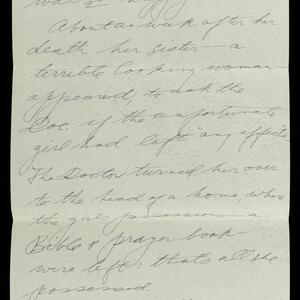 was so
About a week after her
death her sister - a
terrible looking woman -
appeared, to ask the
Doc. if the unfortunate
girl had left "any effects."
The Doctor turned her over
to the head of a home, where
the girls possessions - a
Bible & prayer book -
were left: that's all she
possessed.